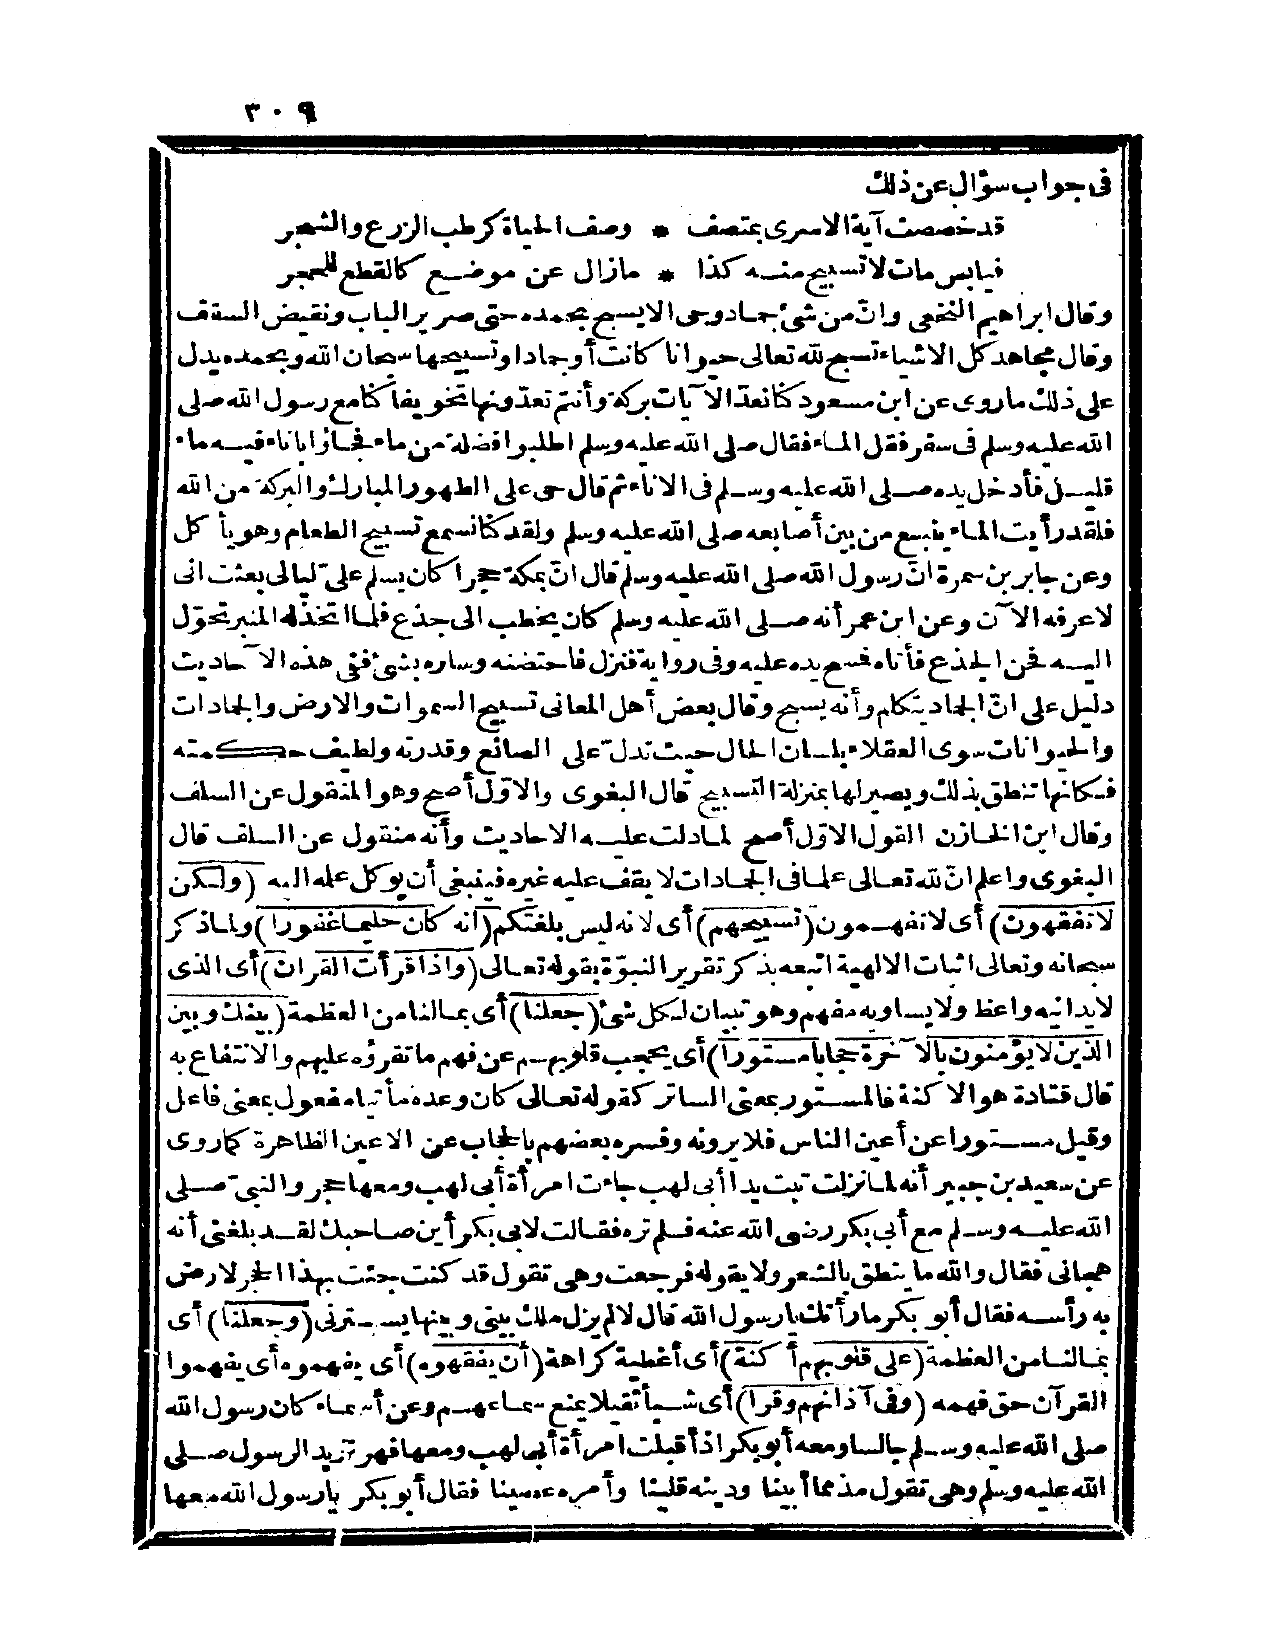 ٣٠٩
فى جواب سؤال عن ذلك
قد خصصت آية الاسرى بمتصف * وصف الحياة كرطب الزرع والشجر
فيابس مات لا تسبيح منه كذا * مازال عن موضع كالقطع للحجر
وقال ابراهيم النخعى وانّ من شئ جماد وحى الا يسبح بحمده حتى صرير الباب ونقيض السقف
وقال مجاهد كل الاشياء تسبح لله تعالى حيوانا كانت أو جمادا وتسبيحها سبحان الله وبحمده يدل
على ذلك ما روى عن ابن مسعود كنا نعدّ الآيات بركة وأنتم تعدّونها تخويفا كنا مع رسول الله صلى
الله عليه وسلم فى سفر فقل الماء فقال صلى الله عليه وسلم اطلبوا فضلة من ماء فجاؤا باناء فيه ماء
قليل فأدخل يده صلى الله عليه وسلم فى الاناء ثم قال حى على الطهور المبارك والبركة من الله
فلقد رأيت الماء ينبع من بين أصابعه صلى الله عليه وسلم ولقد كنا نسمع تسبيح الطعام وهو يأكل
وعن جابر بن سمرة انّ رسول الله صلى الله عليه وسلم قال انّ بمكة حجرا كان يسلم علىّ ليالى بعثت انى
لاعرفه الآن وعن ابن عمر أنه صلى الله عليه وسلم كان يخطب الى جذع فلما اتخذله المنبر تحوّل
اليه فحن الجذع فأتاه فمسح يده عليه وفى رواية فنزل فاحتضنه وساره بشئ ففى هذه الاحاديث
دليل على انّ الجماد يتكلم وأنه يسبح وقال بعض أهل المعانى تسبيح السموات والارض والجمادات
والحيوانات سوى العقلاء بلسان الحال حيث تدلّ على الصانع وقدرته ولطيف حكمته
فكانها تنطق بذلك ويصير لها بمنزلة التسبيح قال البغوى والاوّل أصح وهو المنقول عن السلف
وقال ابن الخازن القول الاوّل أصح لما دلت عليه الاحاديث وأنه منقول عن السلف قال
البغوى واعلم انّ لله تعالى علما فى الجمادات لا يقف عليه غيره فينبغى أن يوكل علمه اليه (ولكن
لا تفقهون) أى لا تفهمون (تسبيحهم) أى لانه ليس بلغتكم (انه كان حليما غفورا) ولما ذكر
سبحانه وتعالى اثبات الالهية اتبعه بذكر تقرير النبوّة بقوله تعالى (واذا قرأت القرآن) أى الذى
لا يدانيه واعظ ولا يساويه مفهم وهو تبيان لكل شئ (جعلنا) أى بمالنا من العظمة (بينك وبين
الذين لا يؤمنون بالآخرة حجابا مستورا) أى يحجب قلوبهم عن فهم ما تقرؤه عليهم والانتفاع به
قال قتادة هو الاكنة فالمستور بمعنى الساتر كقوله تعالى كان وعده مأتيا مفعول بمعنى فاعل
وقيل مستورا عن أعين الناس فلا يرونه وفسره بعضهم بالحجاب عن الاعين الظاهرة كما روى
عن سعيد بن جبير أنه لما نزلت تبت يدا أبى لهب جاءت امرأة أبى لهب ومعها حجر والنبىّ صلى
الله عليه وسلم مع أبى بكر رضى الله عنه فلم تره فقالت لابى بكر أين صاحبك لقد بلغنى أنه
هجانى فقال والله ما ينطق بالشعر ولا يقوله فرجعت وهى تقول قد كنت جئت بهذا الحجر لارض
به رأسه فقال أبو بكر ما رأتك يا رسول الله قال لا لم يزل ملك بينى وبينها يسترنى (وجعلنا) أى
بمالنا من العظمة (على قلوبهم أكنة) أى أغطية كراهة (أن يفقهوه) أى يفهموه أى يفهموا
القرآن حق فهمه (وفى آذانهم وقرا) أى شيأ ثقيلا يمنع سماعهم وعن أسماء كان رسول الله
صلى الله عليه وسلم جالسا ومعه أبو بكر اذ أقبلت امرأة أبى لهب ومعها فهر تريد الرسول صلى
الله عليه وسلم وهى تقول مذمما أبينا ودينه قلينا وأمره عصينا فقال أبو بكر يا رسول الله معها